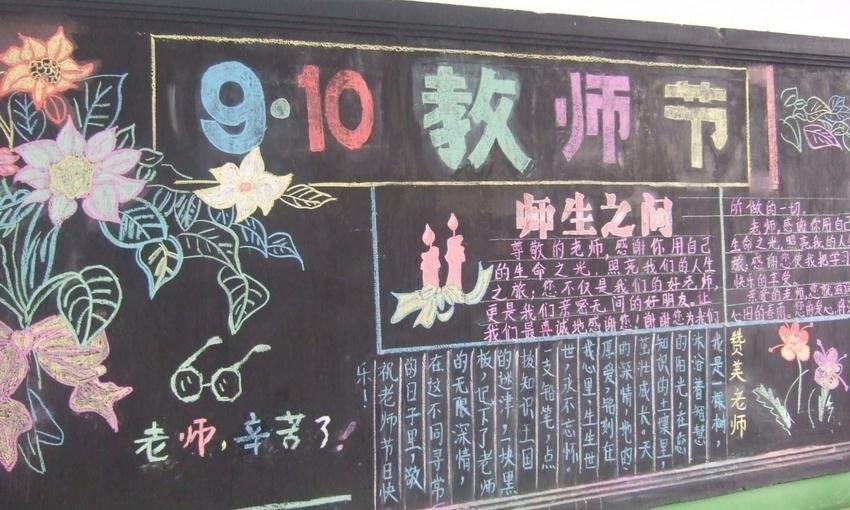 9·10 教师节
师生之间
尊敬的老师,感谢你用自己
的生命之光,照亮我们的人生
之旅;您不仅是我们的好老师,
更是我们亲密无间的好朋友,让
我们最真诚地感谢您!谢谢您为我们
所做的一切.
老师,感谢你用自己
生命之光,照亮我的人
旅,感谢您使我把学习
快乐的享受.
亲爱的老师,您就
心田的春雨,您的爱心,
赞美老师
我是一棵树,
沐浴着智慧
的阳光,在您
知识的土壤里,
茁壮成长。天
的深情,地的
厚爱,铭刻在
我心里,生生世
世,永不忘怀。
一支铅笔,点
拨知识王国
的迷津,一块黑
板,记下了老师
的无限深情,
在这不同寻常
的日子里,敬
祝老师节日快
乐!
老师,辛苦了!